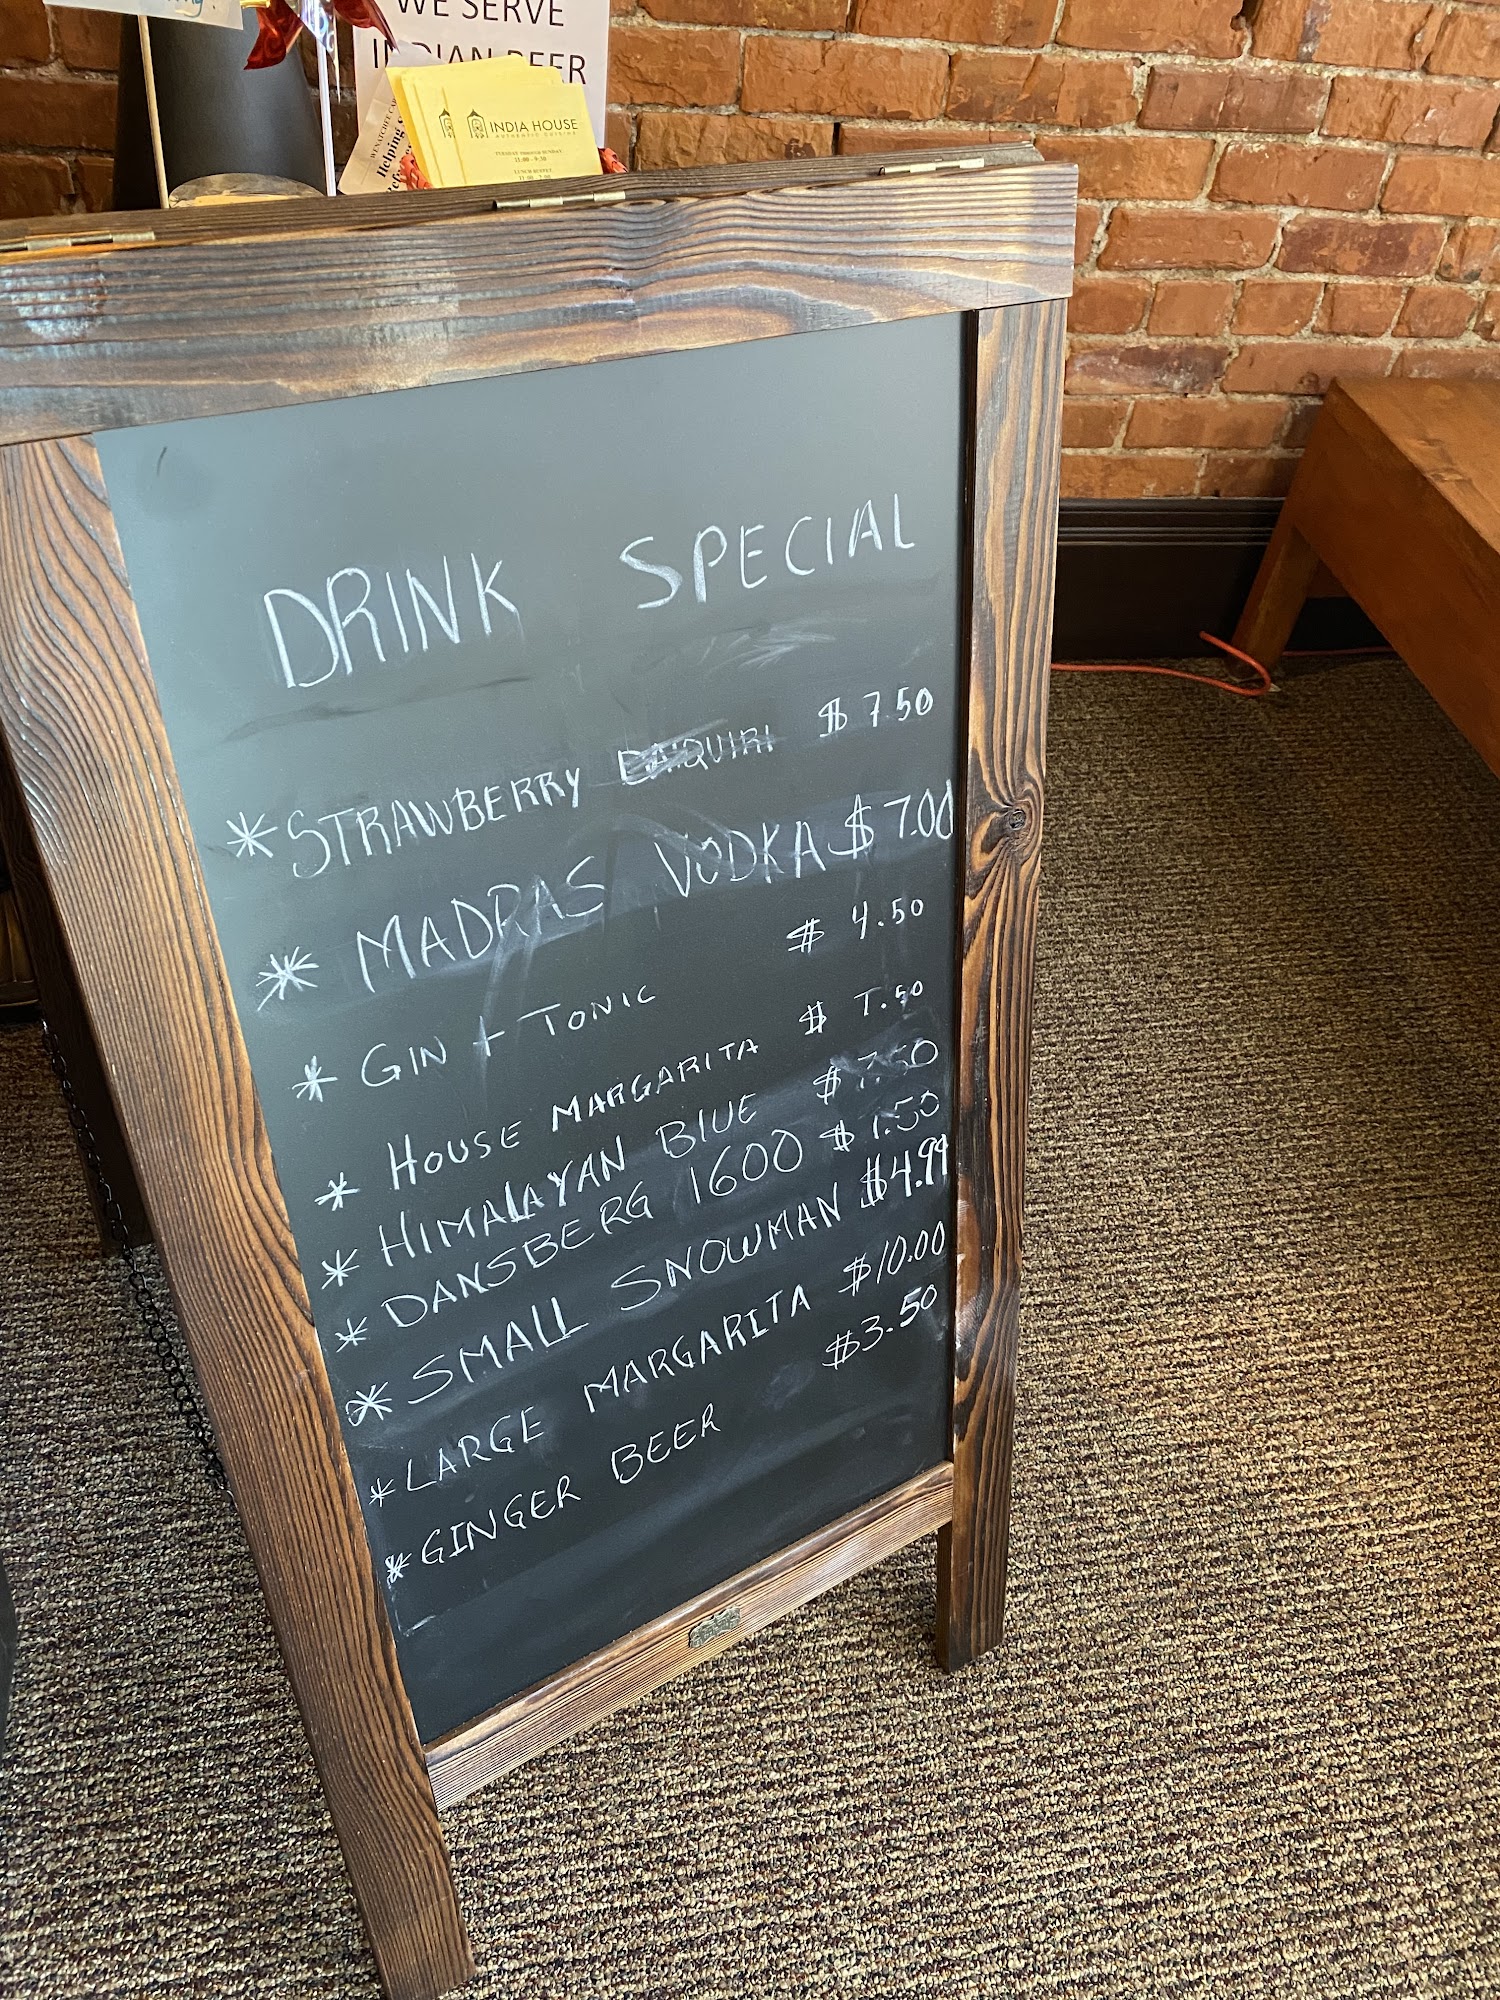 WE SERVE
INDIAN BEER
Helping
INDIA HOUSE
AUTHENTIC CUISINE
TUESDAY THROUGH SUNDAY
11:00 - 9:30
LUNCH BUFFET
DRINK SPECIAL
*STRAWBERRY DAIQUIRI $ 7.50
* MADRAS VODKA $ 7.00
* GIN + TONIC $ 4.50
* HOUSE MARGARITA $ 7.50
* HIMALAYAN BLUE $ 7.50
* DANSBERG 1600 $ 7.50
* SMALL SNOWMAN $4.99
* LARGE MARGARITA $10.00
* GINGER BEER $3.50